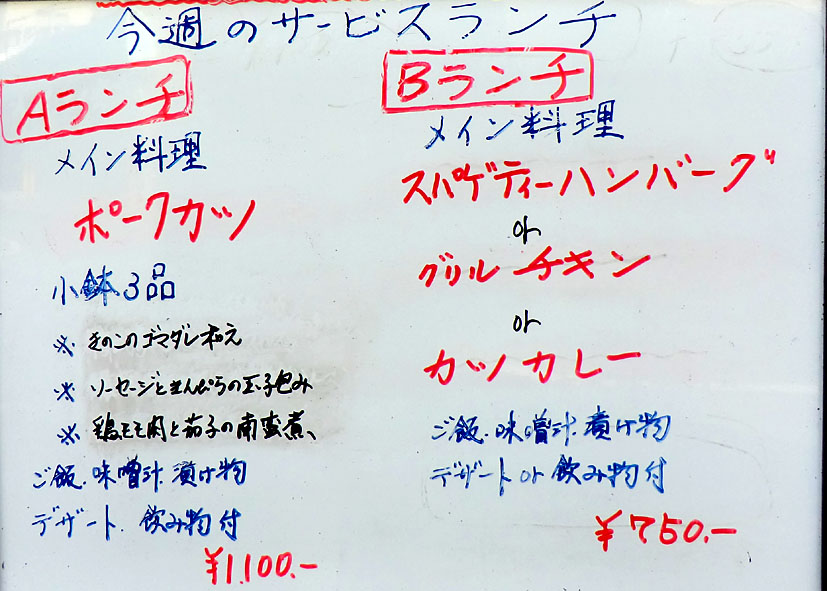 今週のサービスランチ
Aランチ
メイン料理
ポークカツ
小鉢3品
※ きのこのゴマダレ和え
※ ソーセージときんぴらの玉子包み
※ 鶏もも肉と茄子の南蛮煮、
ご飯.味噌汁.漬け物
デザート.飲み物付
¥1,100.-
Bランチ
メイン料理
スパゲティーハンバーグ
or
グリルチキン
or
カツカレー
ご飯.味噌汁.漬け物
デザートor飲み物付
¥750.-